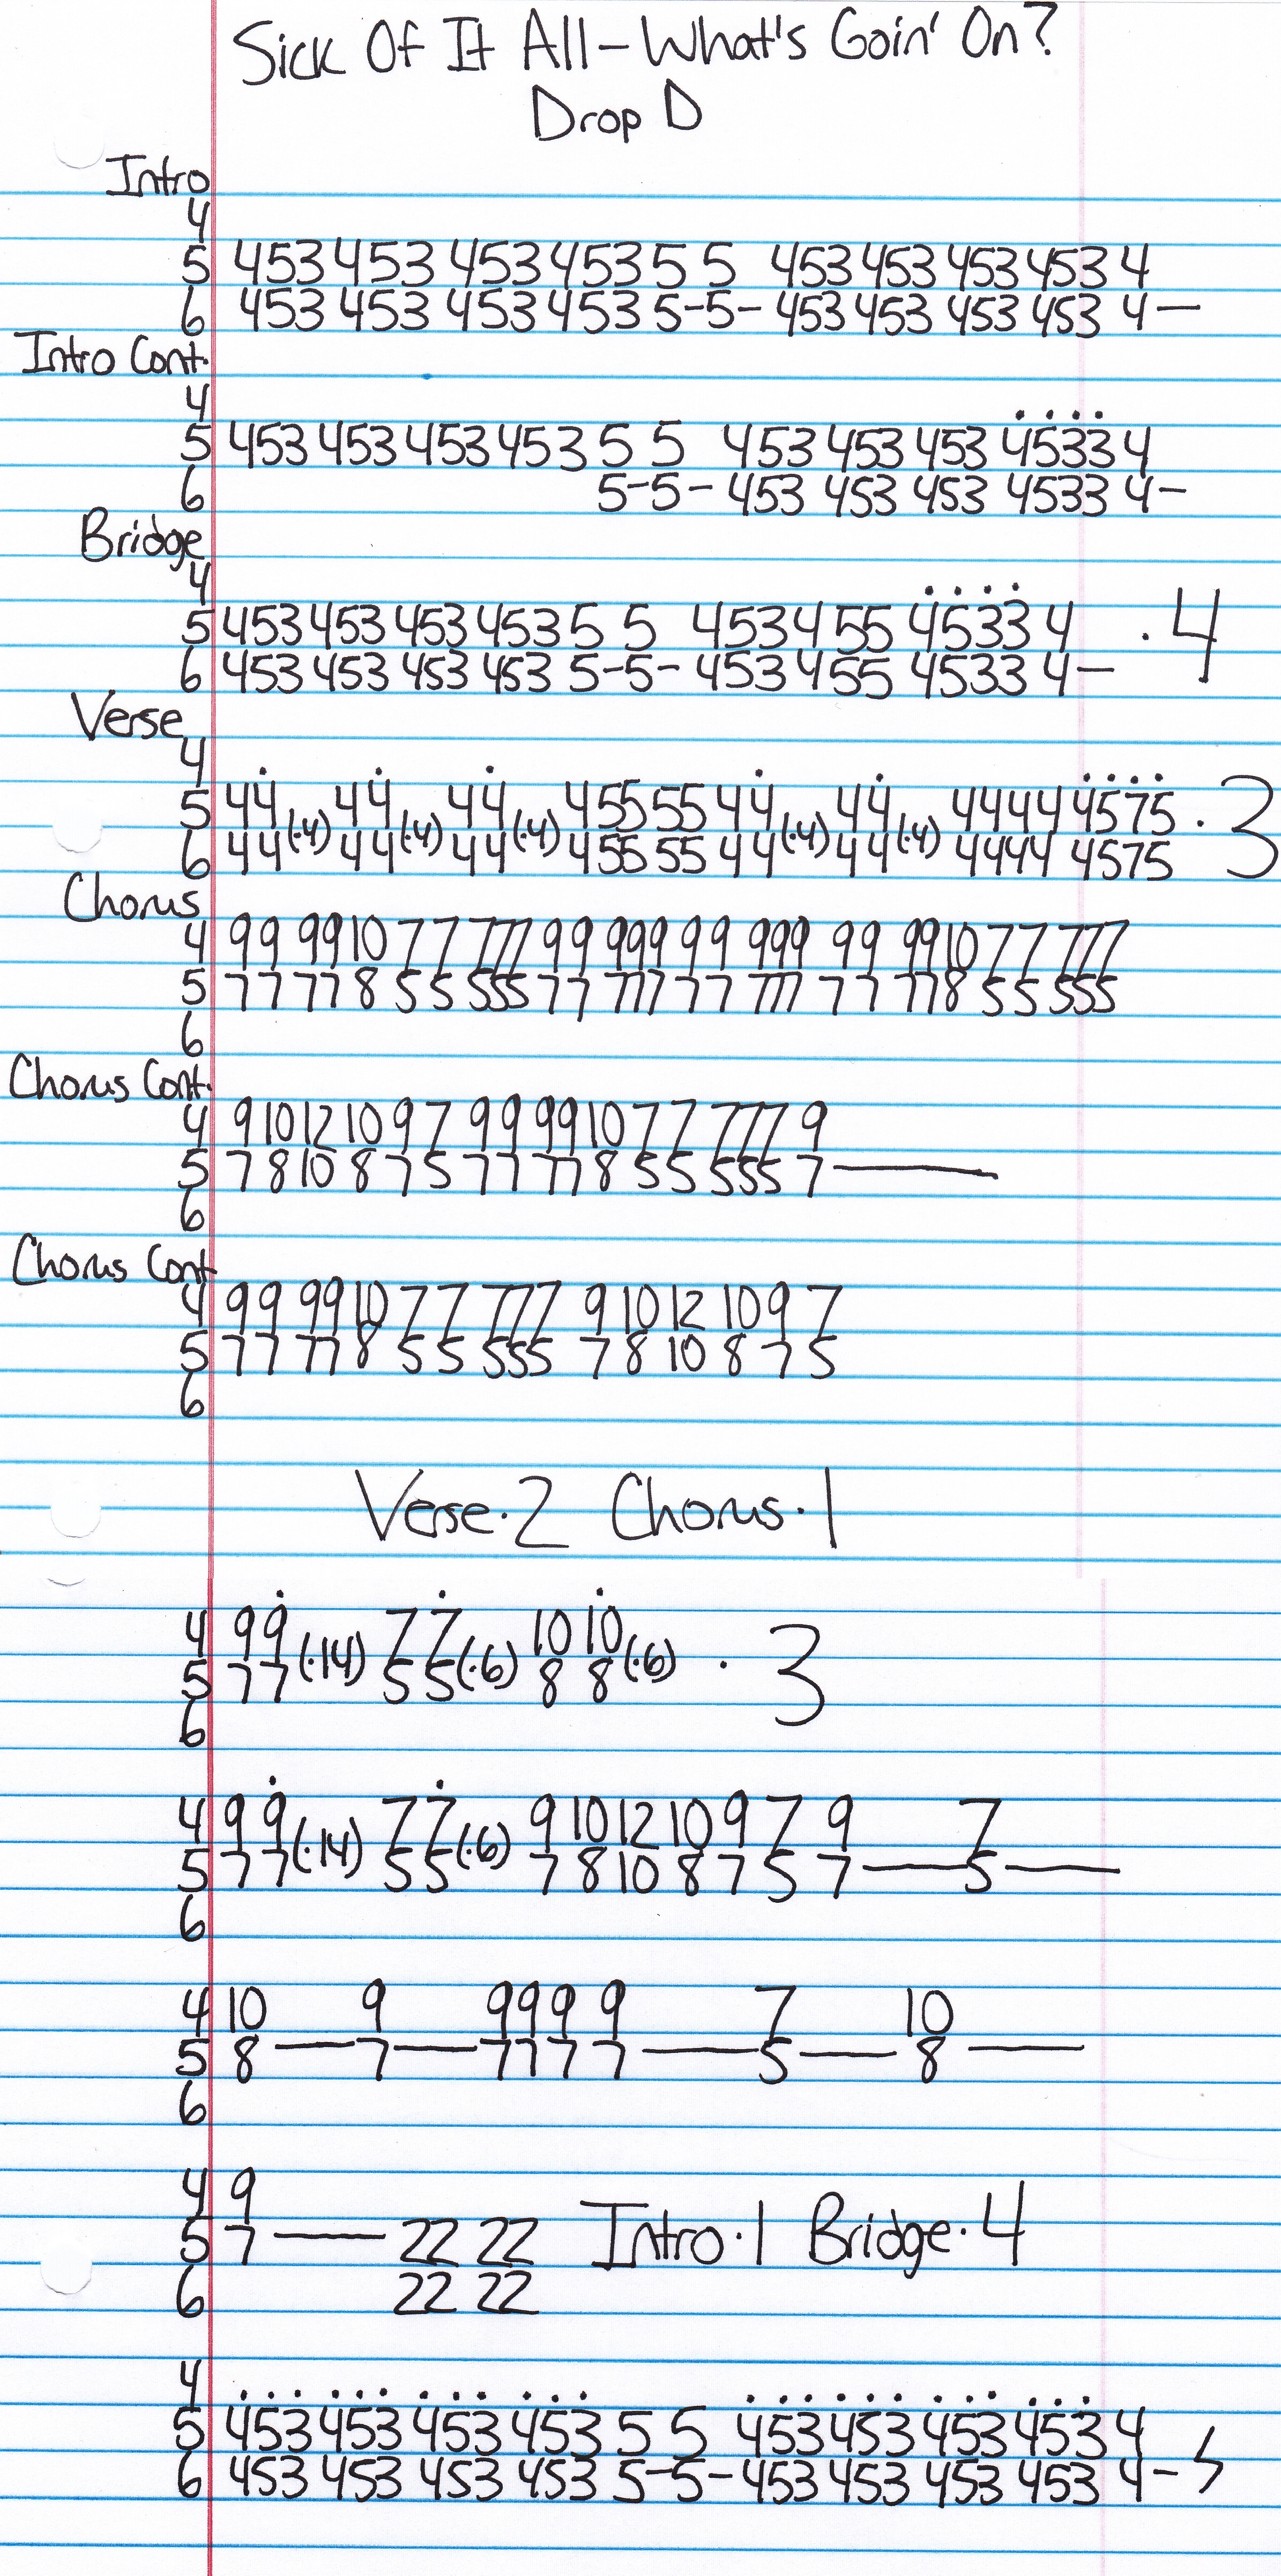 Sick Of It All - What's Goin' On?
Drop D
Intro
4
5 453 453 453 453 5 5 453 453 453 453 4
6 453 453 453 453 5-5- 453 453 453 453 4—
Intro Cont.
4
5 453 453 453 453 5 5 453 453 453 4533 4
6 5-5- 453 453 453 4533 4-
Bridge
4
5 453 453 453 453 5 5 453 455 4533 4 ·4
6 453 453 453 453 5-5- 453 455 4533 4—
Verse
4
5 44(·4) 44(·4) 44(·4) 455 55 44(·4) 44(·4) 4444 4575 ·3
6 44 44 44 455 55 44 44 4444 4575
Chorus
4 99 99 10 7 7 777 99 999 99 999 99 99 10 7 7 777
5 77 77 8 5 5 555 77 777 77 777 77 77 8 5 5 555
6
Chorus Cont.
4 9 10 12 10 9 7 99 99 10 7 7 777 9
5 7 8 10 8 7 5 77 77 8 5 5 555 7—
6
Chorus Cont
4 99 99 10 7 7 777 9 10 12 10 9 7
5 77 77 8 5 5 555 7 8 10 8 7 5
6
Verse·2 Chorus·1
4 99(·14) 77(·6) 10 10(·6) ·3
5 77 55 8 8
6
4 99(·14) 77(·6) 9 10 12 10 9 7 9 7
5 77 55 7 8 10 8 7 5 7—5—
6
4 10 9 999 9 7 10
5 8—7—777 7—5—8—
6
4 9
5 7—22 22 Intro·1 Bridge·4
6 22 22
4
5 453 453 453 453 5 5 453 453 453 453 4
6 453 453 453 453 5-5- 453 453 453 453 4-